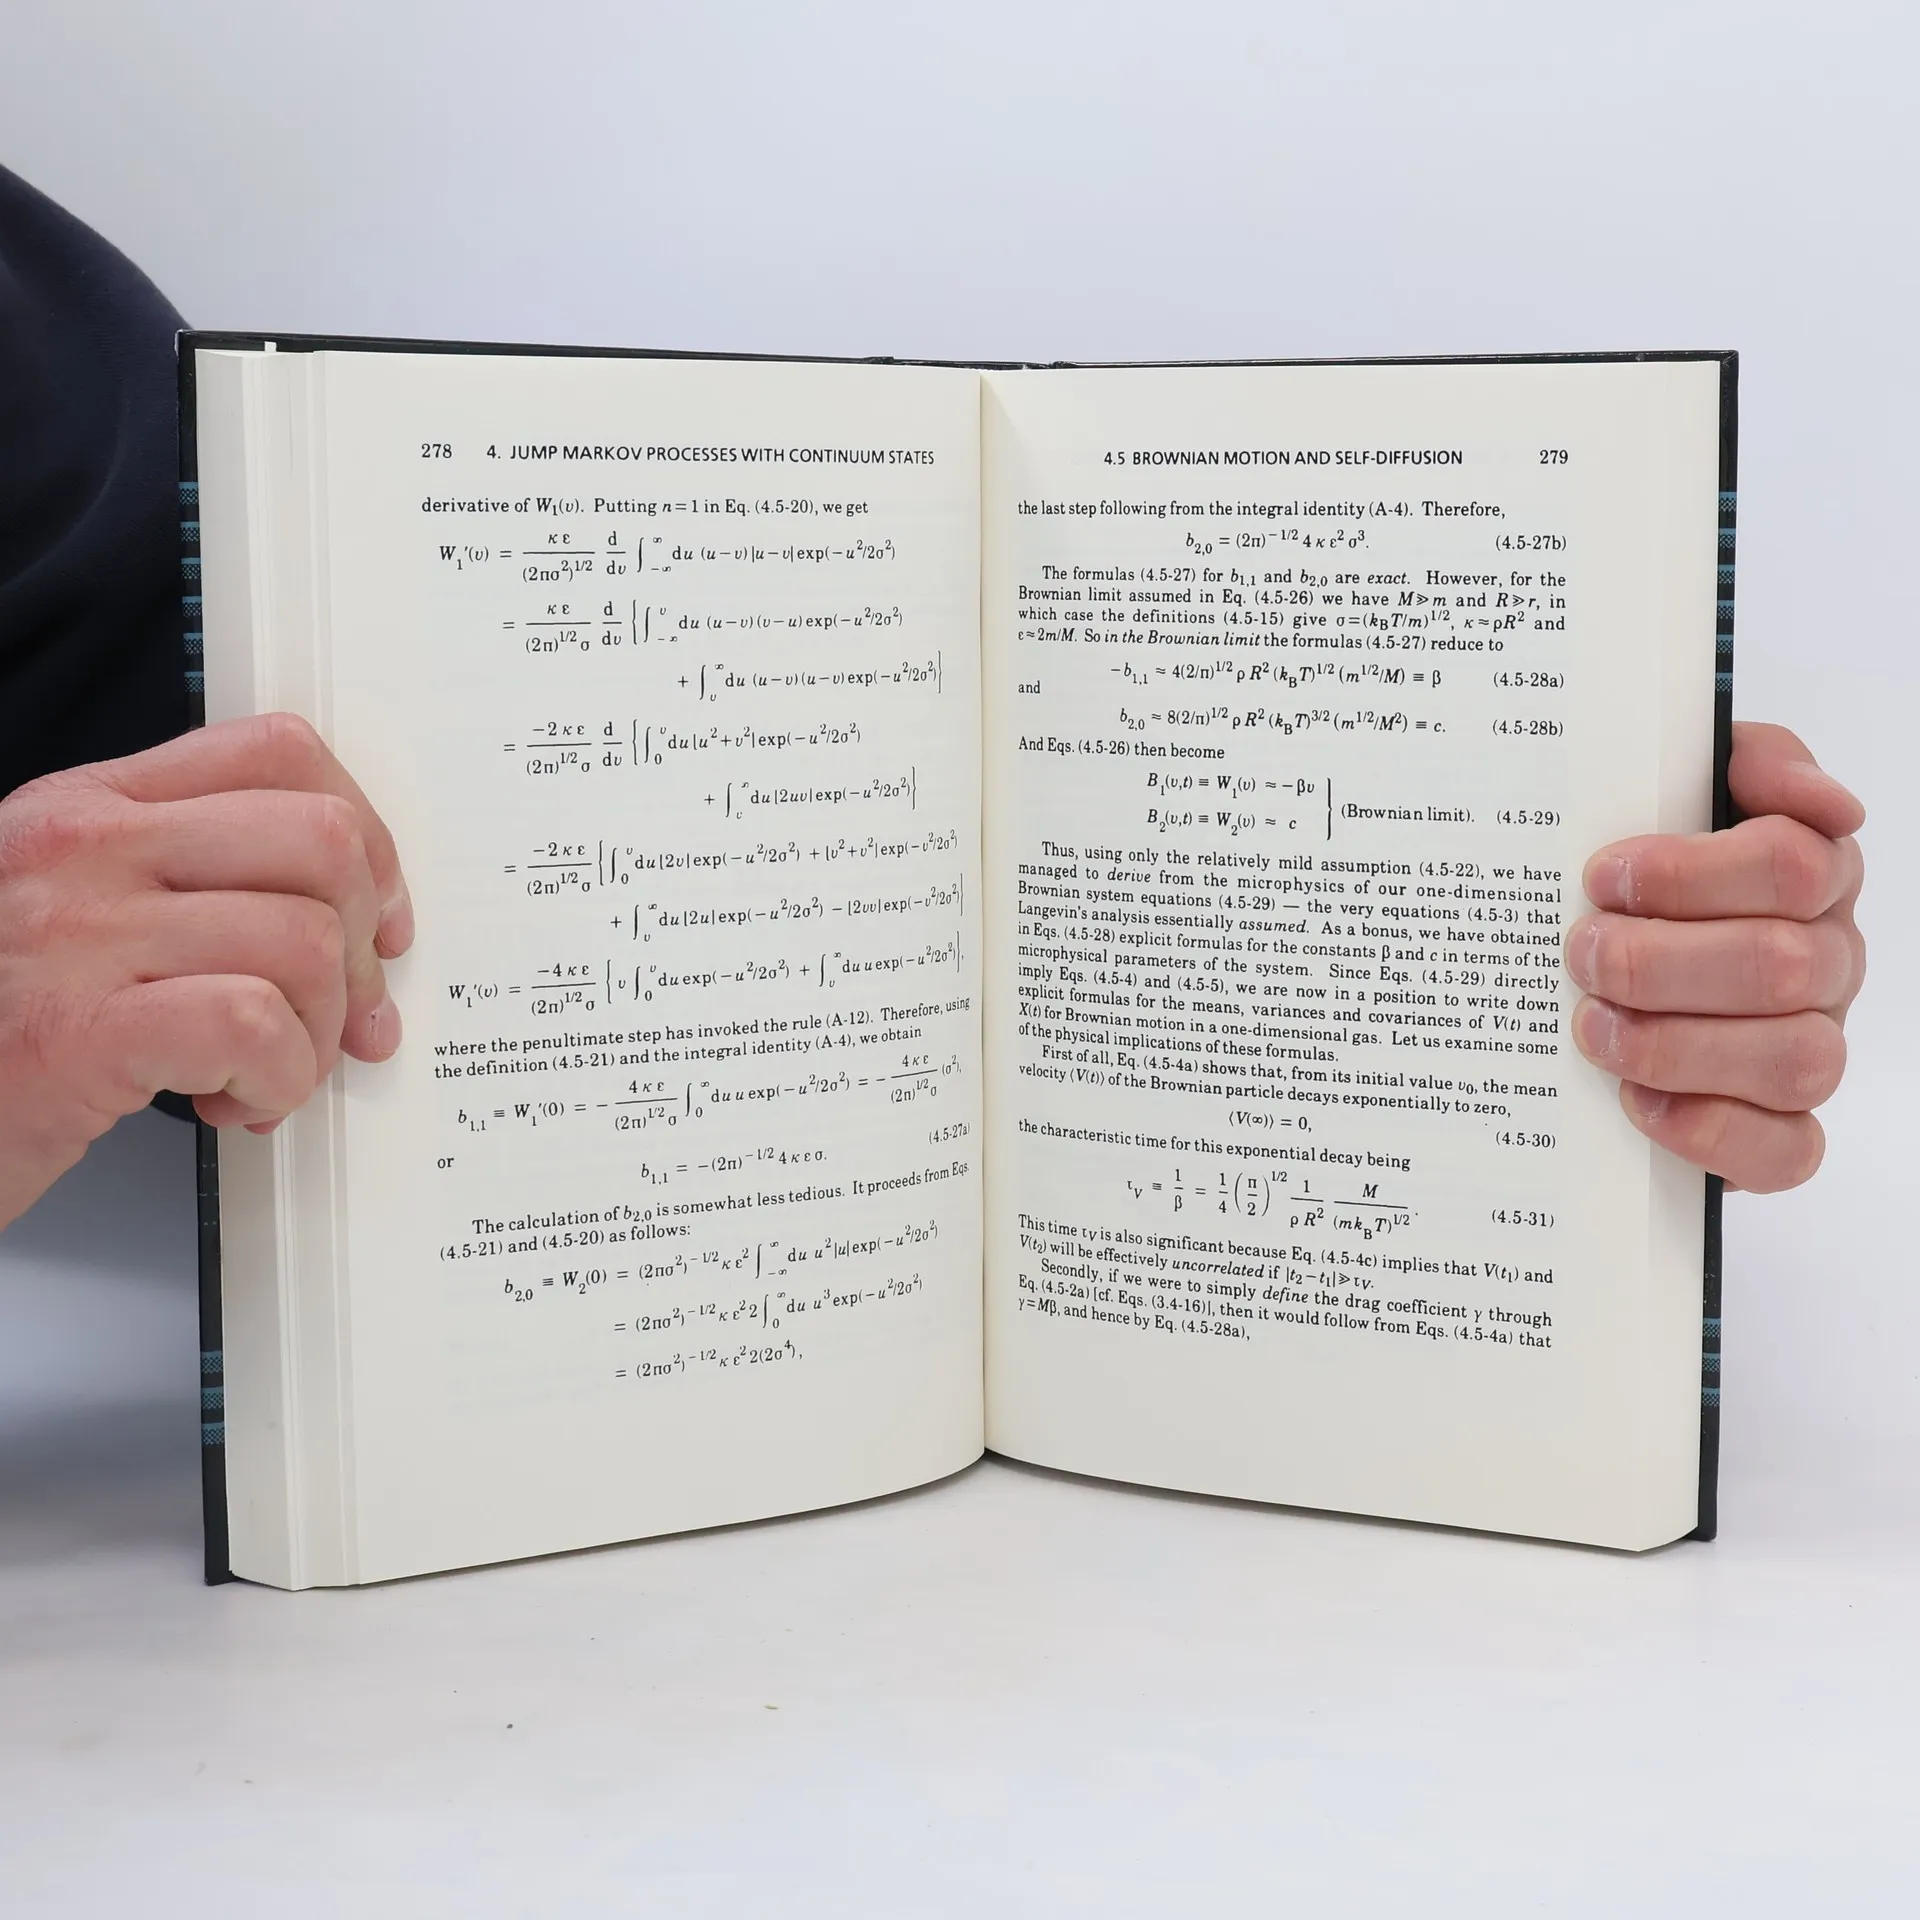 278 4. JUMP MARKOV PROCESSES WITH CONTINUUM STATES
derivative of W₁(υ). Putting n=1 in Eq. (4.5-20), we get
W₁′(υ) = κε/(2πσ²)^1/2 d/dυ ∫_−∞^∞ du (u−υ)|u−υ|exp(−u²/2σ²)
= κε/(2π)^1/2 σ d/dυ {∫_−∞^υ du (u−υ)(υ−u)exp(−u²/2σ²)
+ ∫_υ^∞ du (u−υ)(u−υ)exp(−u²/2σ²)}
= −2κε/(2π)^1/2 σ d/dυ {∫_0^υ du[u²+υ²]exp(−u²/2σ²)
+ ∫_υ^∞ du[2uυ]exp(−u²/2σ²)}
= −2κε/(2π)^1/2 σ {∫_0^υ du[2υ]exp(−u²/2σ²) + [υ²+υ²]exp(−υ²/2σ²)
+ ∫_υ^∞ du[2u]exp(−u²/2σ²) − [2υυ]exp(−υ²/2σ²)}
W₁′(υ) = −4κε/(2π)^1/2 σ {υ ∫_0^υ du exp(−u²/2σ²) + ∫_υ^∞ du u exp(−u²/2σ²)},
where the penultimate step has invoked the rule (A-12). Therefore, using
the definition (4.5-21) and the integral identity (A-4), we obtain
b₁,₁ ≡ W₁′(0) = − 4κε/(2π)^1/2 σ ∫_0^∞ du u exp(−u²/2σ²) = − 4κε/(2π)^1/2 σ (σ²),
or
b₁,₁ = −(2π)^−1/2 4κεσ. (4.5-27a)
The calculation of b₂,₀ is somewhat less tedious. It proceeds from Eqs.
(4.5-21) and (4.5-20) as follows:
b₂,₀ ≡ W₂(0) = (2πσ²)^−1/2 κε² ∫_−∞^∞ du u²|u|exp(−u²/2σ²)
= (2πσ²)^−1/2 κε² 2 ∫_0^∞ du u³ exp(−u²/2σ²)
= (2πσ²)^−1/2 κε² 2(2σ⁴),
4.5 BROWNIAN MOTION AND SELF-DIFFUSION 279
the last step following from the integral identity (A-4). Therefore,
b₂,₀ = (2π)^−1/2 4κε²σ³. (4.5-27b)
The formulas (4.5-27) for b₁,₁ and b₂,₀ are exact. However, for the
Brownian limit assumed in Eq. (4.5-26) we have M≫m and R≫r, in
which case the definitions (4.5-15) give σ=(k_BT/m)^1/2, κ≈ρR² and
ε≈2m/M. So in the Brownian limit the formulas (4.5-27) reduce to
−b₁,₁ ≈ 4(2/π)^1/2 ρR²(k_BT)^1/2 (m^1/2/M) ≡ β (4.5-28a)
and
b₂,₀ ≈ 8(2/π)^1/2 ρR²(k_BT)^3/2 (m^1/2/M²) ≡ c. (4.5-28b)
And Eqs. (4.5-26) then become
B₁(υ,t) ≡ W₁(υ) ≈ −βυ
B₂(υ,t) ≡ W₂(υ) ≈ c } (Brownian limit). (4.5-29)
Thus, using only the relatively mild assumption (4.5-22), we have
managed to derive from the microphysics of our one-dimensional
Brownian system equations (4.5-29) — the very equations (4.5-3) that
Langevin's analysis essentially assumed. As a bonus, we have obtained
in Eqs. (4.5-28) explicit formulas for the constants β and c in terms of the
microphysical parameters of the system. Since Eqs. (4.5-29) directly
imply Eqs. (4.5-4) and (4.5-5), we are now in a position to write down
explicit formulas for the means, variances and covariances of V(t) and
X(t) for Brownian motion in a one-dimensional gas. Let us examine some
of the physical implications of these formulas.
First of all, Eq. (4.5-4a) shows that, from its initial value υ₀, the mean
velocity ⟨V(t)⟩ of the Brownian particle decays exponentially to zero,
⟨V(∞)⟩ = 0, (4.5-30)
the characteristic time for this exponential decay being
τ_V ≡ 1/β = 1/4 (π/2)^1/2 1/ρR² M/(mk_BT)^1/2 . (4.5-31)
This time τ_V is also significant because Eq. (4.5-4c) implies that V(t₁) and
V(t₂) will be effectively uncorrelated if |t₂−t₁|≫τ_V.
Secondly, if we were to simply define the drag coefficient γ through
Eq. (4.5-2a) [cf. Eqs. (3.4-16)], then it would follow from Eqs. (4.5-4a) that
γ=Mβ, and hence by Eq. (4.5-28a),